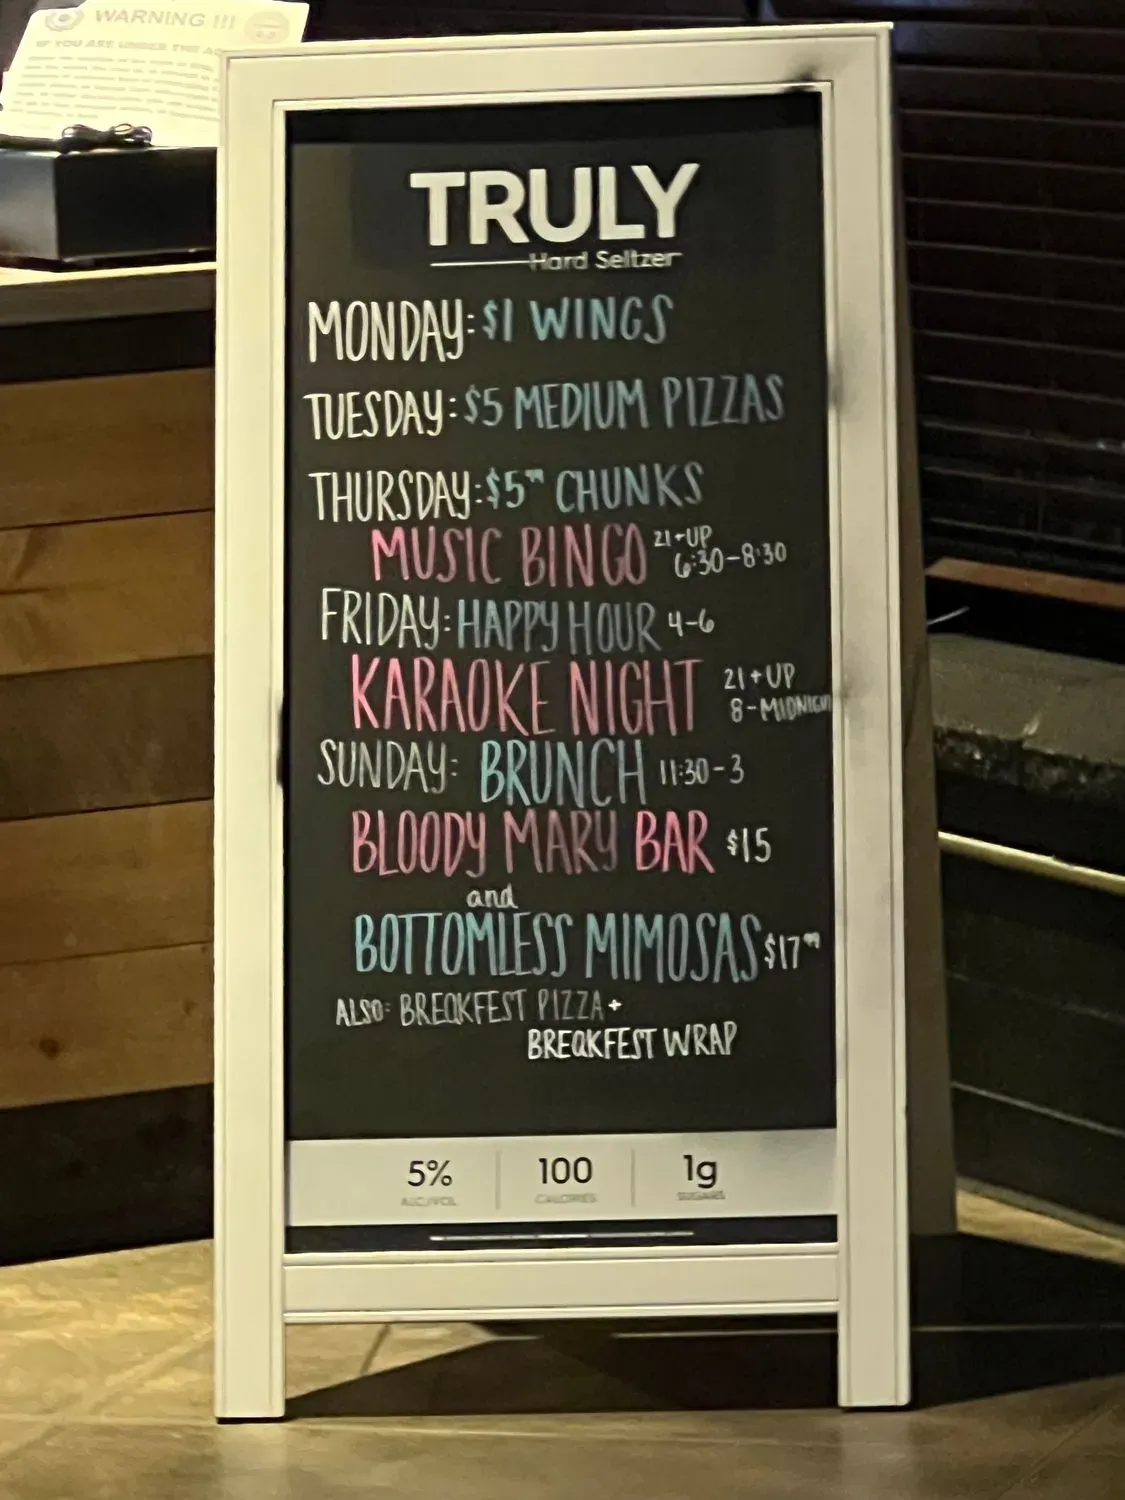 WARNING !!!
IF YOU ARE UNDER THE
TRULY
Hard Seltzer
MONDAY: $1 WINGS
TUESDAY: $5 MEDIUM PIZZAS
THURSDAY: $5⁹⁹ CHUNKS
MUSIC BINGO 21+UP
6:30-8:30
FRIDAY: HAPPY HOUR 4-6
KARAOKE NIGHT 21+UP
8-MIDNIGHT
SUNDAY: BRUNCH 11:30-3
BLOODY MARY BAR $15
and
BOTTOMLESS MIMOSAS $17⁹⁹
ALSO: BREAKFEST PIZZA +
BREAKFEST WRAP
5% 100 1g
ALC/VOL CALORIES SUGARS